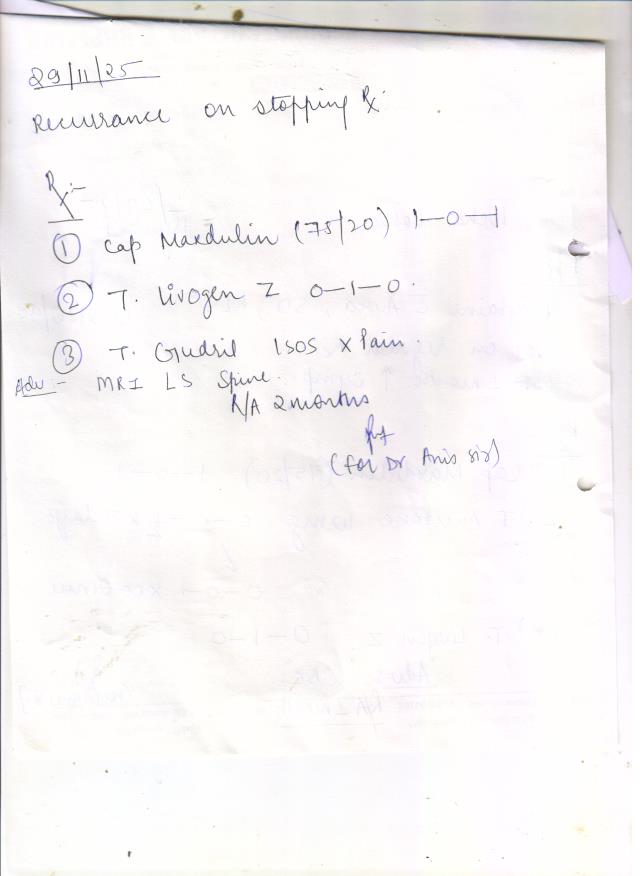 29/11/25
Recurrance on stopping Rx.
Rx:-
① Cap Maxdulin (75/20) 1-0-1
② T. Livogen Z 0-1-0.
③ T. Gudsil 1SOS x Pain.
Adv:- MRI LS Spine.
R/A 2 months
(for Dr Anis sir)